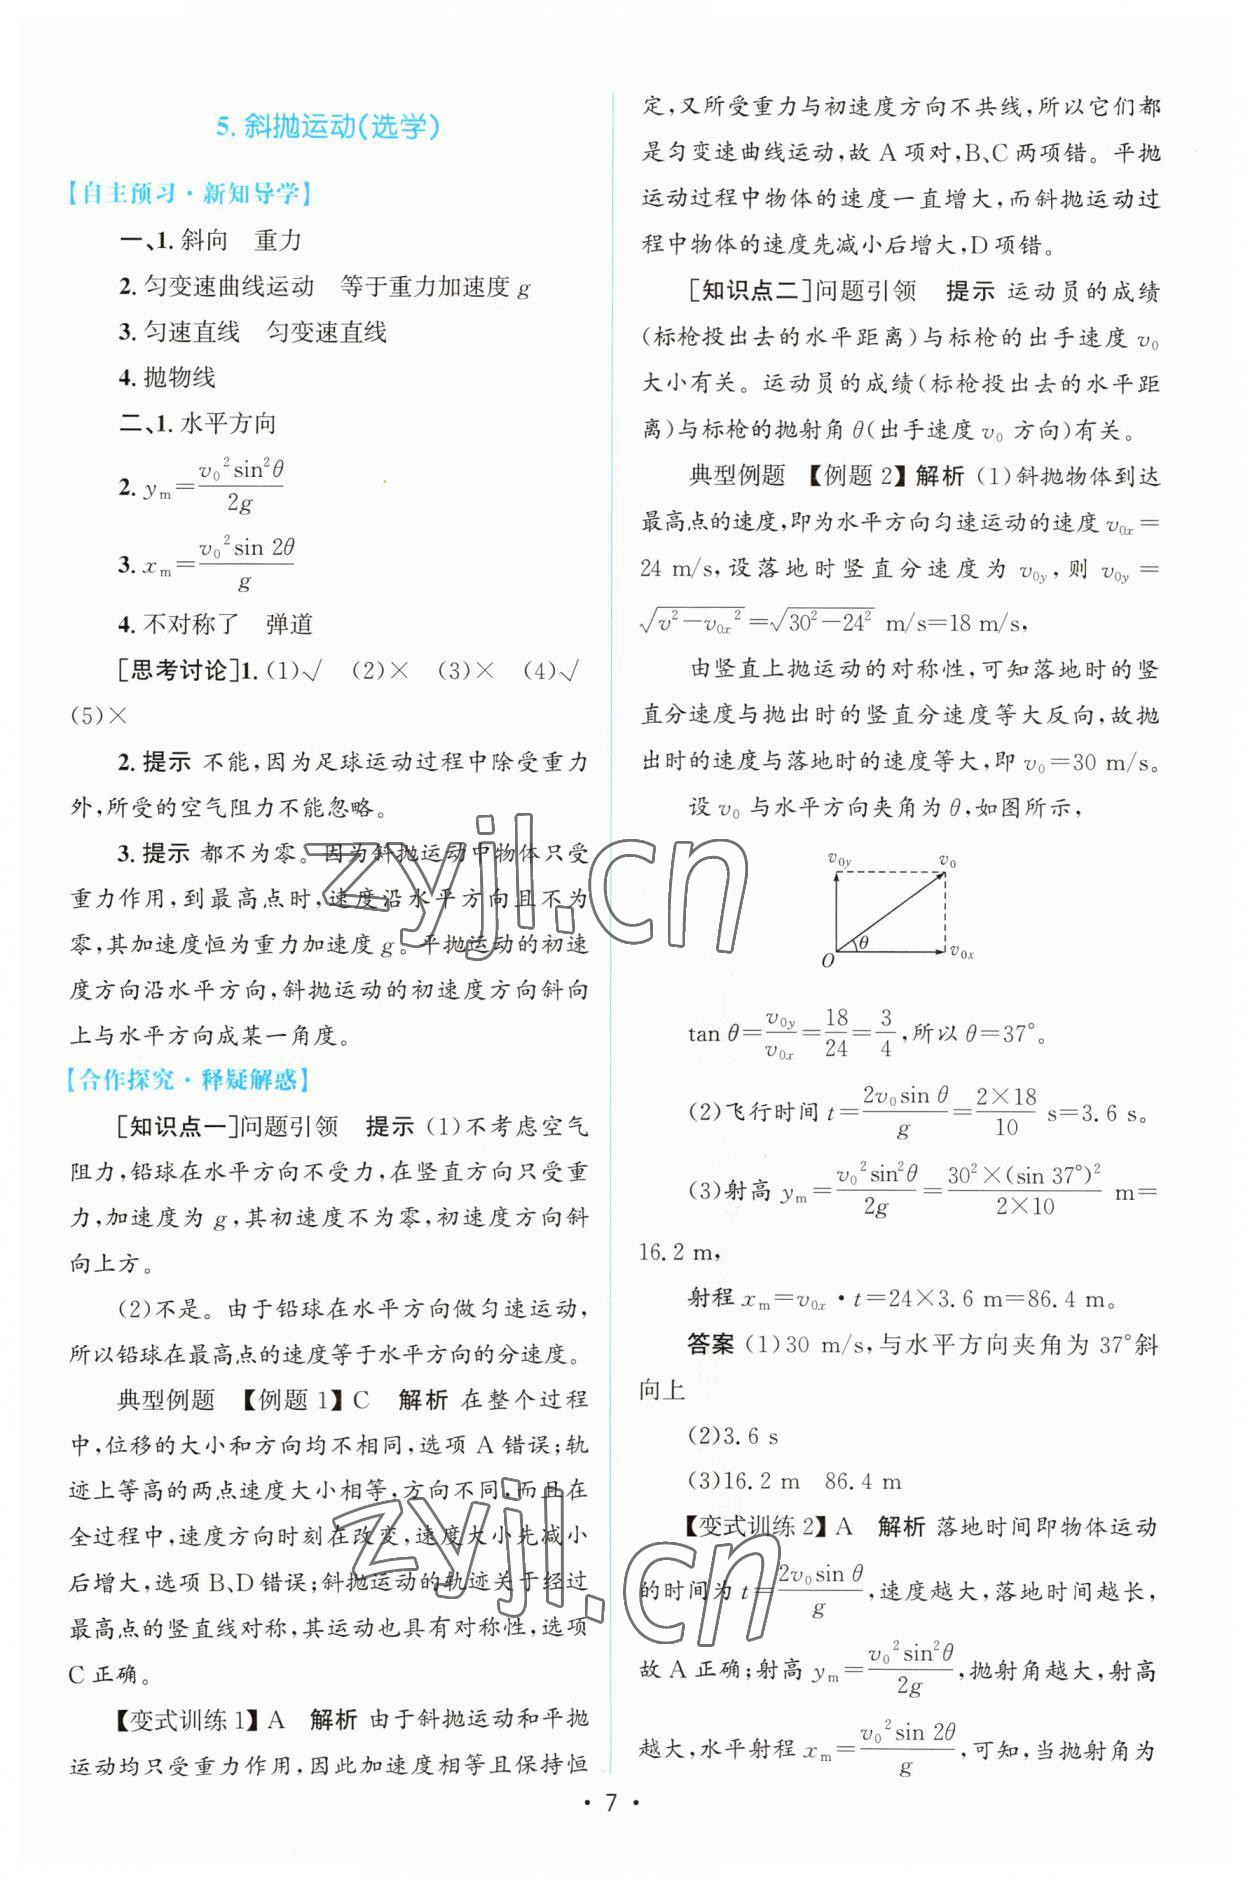 5. 斜抛运动(选学)
【自主预习·新知导学】
一、1. 斜向　重力
2. 匀变速曲线运动　等于重力加速度 g
3. 匀速直线　匀变速直线
4. 抛物线
二、1. 水平方向
2. yₘ=v₀²sin²θ/2g
3. xₘ=v₀²sin 2θ/g
4. 不对称了　弹道
[思考讨论]1. (1)√　(2)×　(3)×　(4)√
(5)×
2. 提示 不能,因为足球运动过程中除受重力
外,所受的空气阻力不能忽略。
3. 提示 都不为零。因为斜抛运动中物体只受
重力作用,到最高点时,速度沿水平方向且不为
零,其加速度恒为重力加速度 g。平抛运动的初速
度方向沿水平方向,斜抛运动的初速度方向斜向
上与水平方向成某一角度。
【合作探究·释疑解惑】
[知识点一]问题引领　提示 (1)不考虑空气
阻力,铅球在水平方向不受力,在竖直方向只受重
力,加速度为 g,其初速度不为零,初速度方向斜
向上方。
(2)不是。由于铅球在水平方向做匀速运动,
所以铅球在最高点的速度等于水平方向的分速度。
典型例题　【例题1】C　解析 在整个过程
中,位移的大小和方向均不相同,选项 A 错误;轨
迹上等高的两点速度大小相等,方向不同,而且在
全过程中,速度方向时刻在改变,速度大小先减小
后增大,选项 B、D 错误;斜抛运动的轨迹关于经过
最高点的竖直线对称,其运动也具有对称性,选项
C 正确。
【变式训练1】A　解析 由于斜抛运动和平抛
运动均只受重力作用,因此加速度相等且保持恒
定,又所受重力与初速度方向不共线,所以它们都
是匀变速曲线运动,故 A 项对,B、C 两项错。平抛
运动过程中物体的速度一直增大,而斜抛运动过
程中物体的速度先减小后增大,D 项错。
[知识点二]问题引领　提示 运动员的成绩
(标枪投出去的水平距离)与标枪的出手速度 v₀
大小有关。运动员的成绩(标枪投出去的水平距
离)与标枪的抛射角 θ(出手速度 v₀ 方向)有关。
典型例题　【例题2】解析 (1)斜抛物体到达
最高点的速度,即为水平方向匀速运动的速度 v₀ₓ=
24 m/s,设落地时竖直分速度为 v₀y,则 v₀y=
√(v²−v₀ₓ²)=√(30²−24²) m/s=18 m/s,
由竖直上抛运动的对称性,可知落地时的竖
直分速度与抛出时的竖直分速度等大反向,故抛
出时的速度与落地时的速度等大,即 v₀=30 m/s。
设 v₀ 与水平方向夹角为 θ,如图所示,
v₀y　v₀
θ
O　v₀ₓ
tan θ=v₀y/v₀ₓ=18/24=3/4,所以 θ=37°。
(2)飞行时间 t=2v₀sin θ/g=2×18/10 s=3.6 s。
(3)射高 yₘ=v₀²sin²θ/2g=30²×(sin 37°)²/2×10 m=
16.2 m,
射程 xₘ=v₀ₓ·t=24×3.6 m=86.4 m。
答案 (1)30 m/s,与水平方向夹角为 37°斜
向上
(2)3.6 s
(3)16.2 m　86.4 m
【变式训练2】A　解析 落地时间即物体运动
的时间为 t=2v₀sin θ/g,速度越大,落地时间越长,
故 A 正确;射高 yₘ=v₀²sin²θ/2g,抛射角越大,射高
越大,水平射程 xₘ=v₀²sin 2θ/g,可知,当抛射角为
· 7 ·
zyjl.cn
zyjl.cn